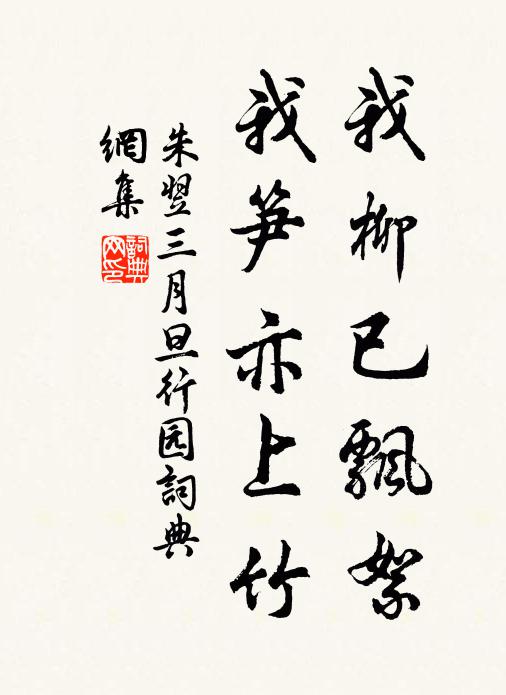 我柳已飄絮
我笋亦上竹
朱翌三月旦行园詞典
網集
詞典
网印